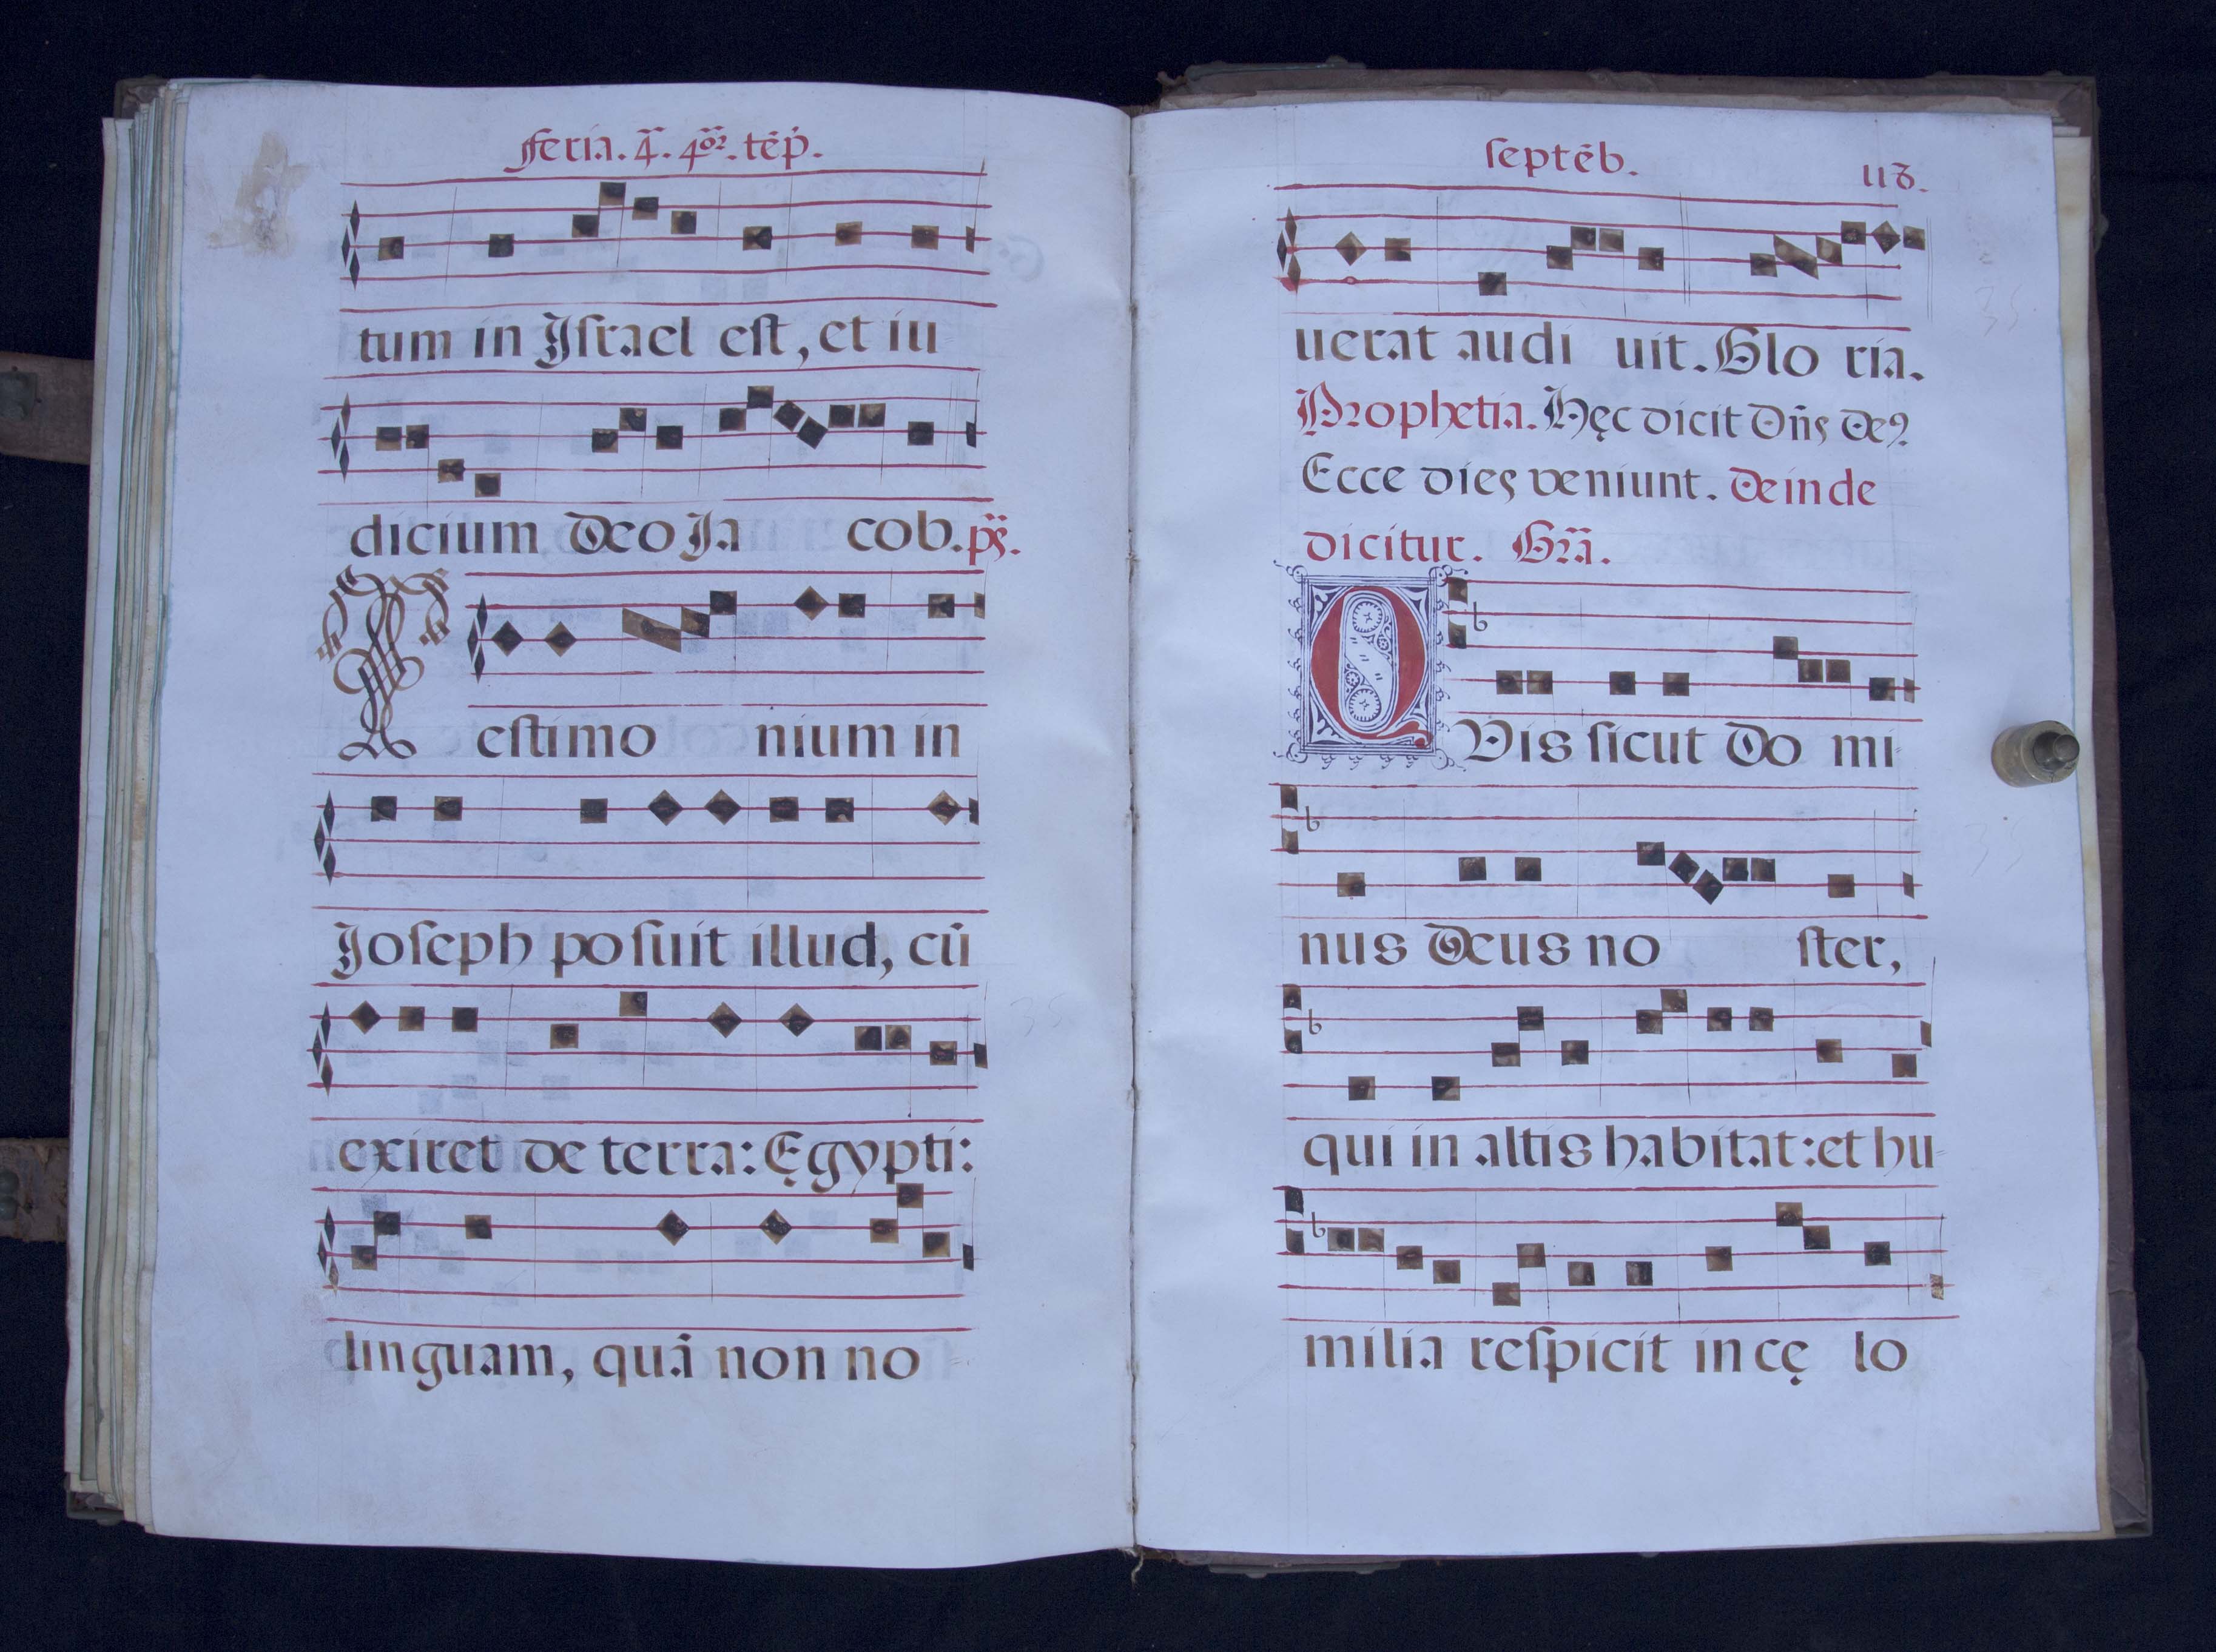 feria. 4ā. 4or. tēp̄.
tum in Jſrael eſt, et iu
dicium deo Ja cob. ps̄.
T eſtimo nium in
Joſeph poſuit illud, cū
exiret de terra: Ęgypti:
linguam, quā non no
ſeptēb. 118.
uerat audi uit. Glo ria.
Prophetia. Hęc dicit Dn̄s de9
Ecce dies veniunt. deinde
dicitur. Grā.
QVis ſicut do mi-
nus deus no ſter,
qui in altis habitat: et hu-
milia reſpicit in cę lo